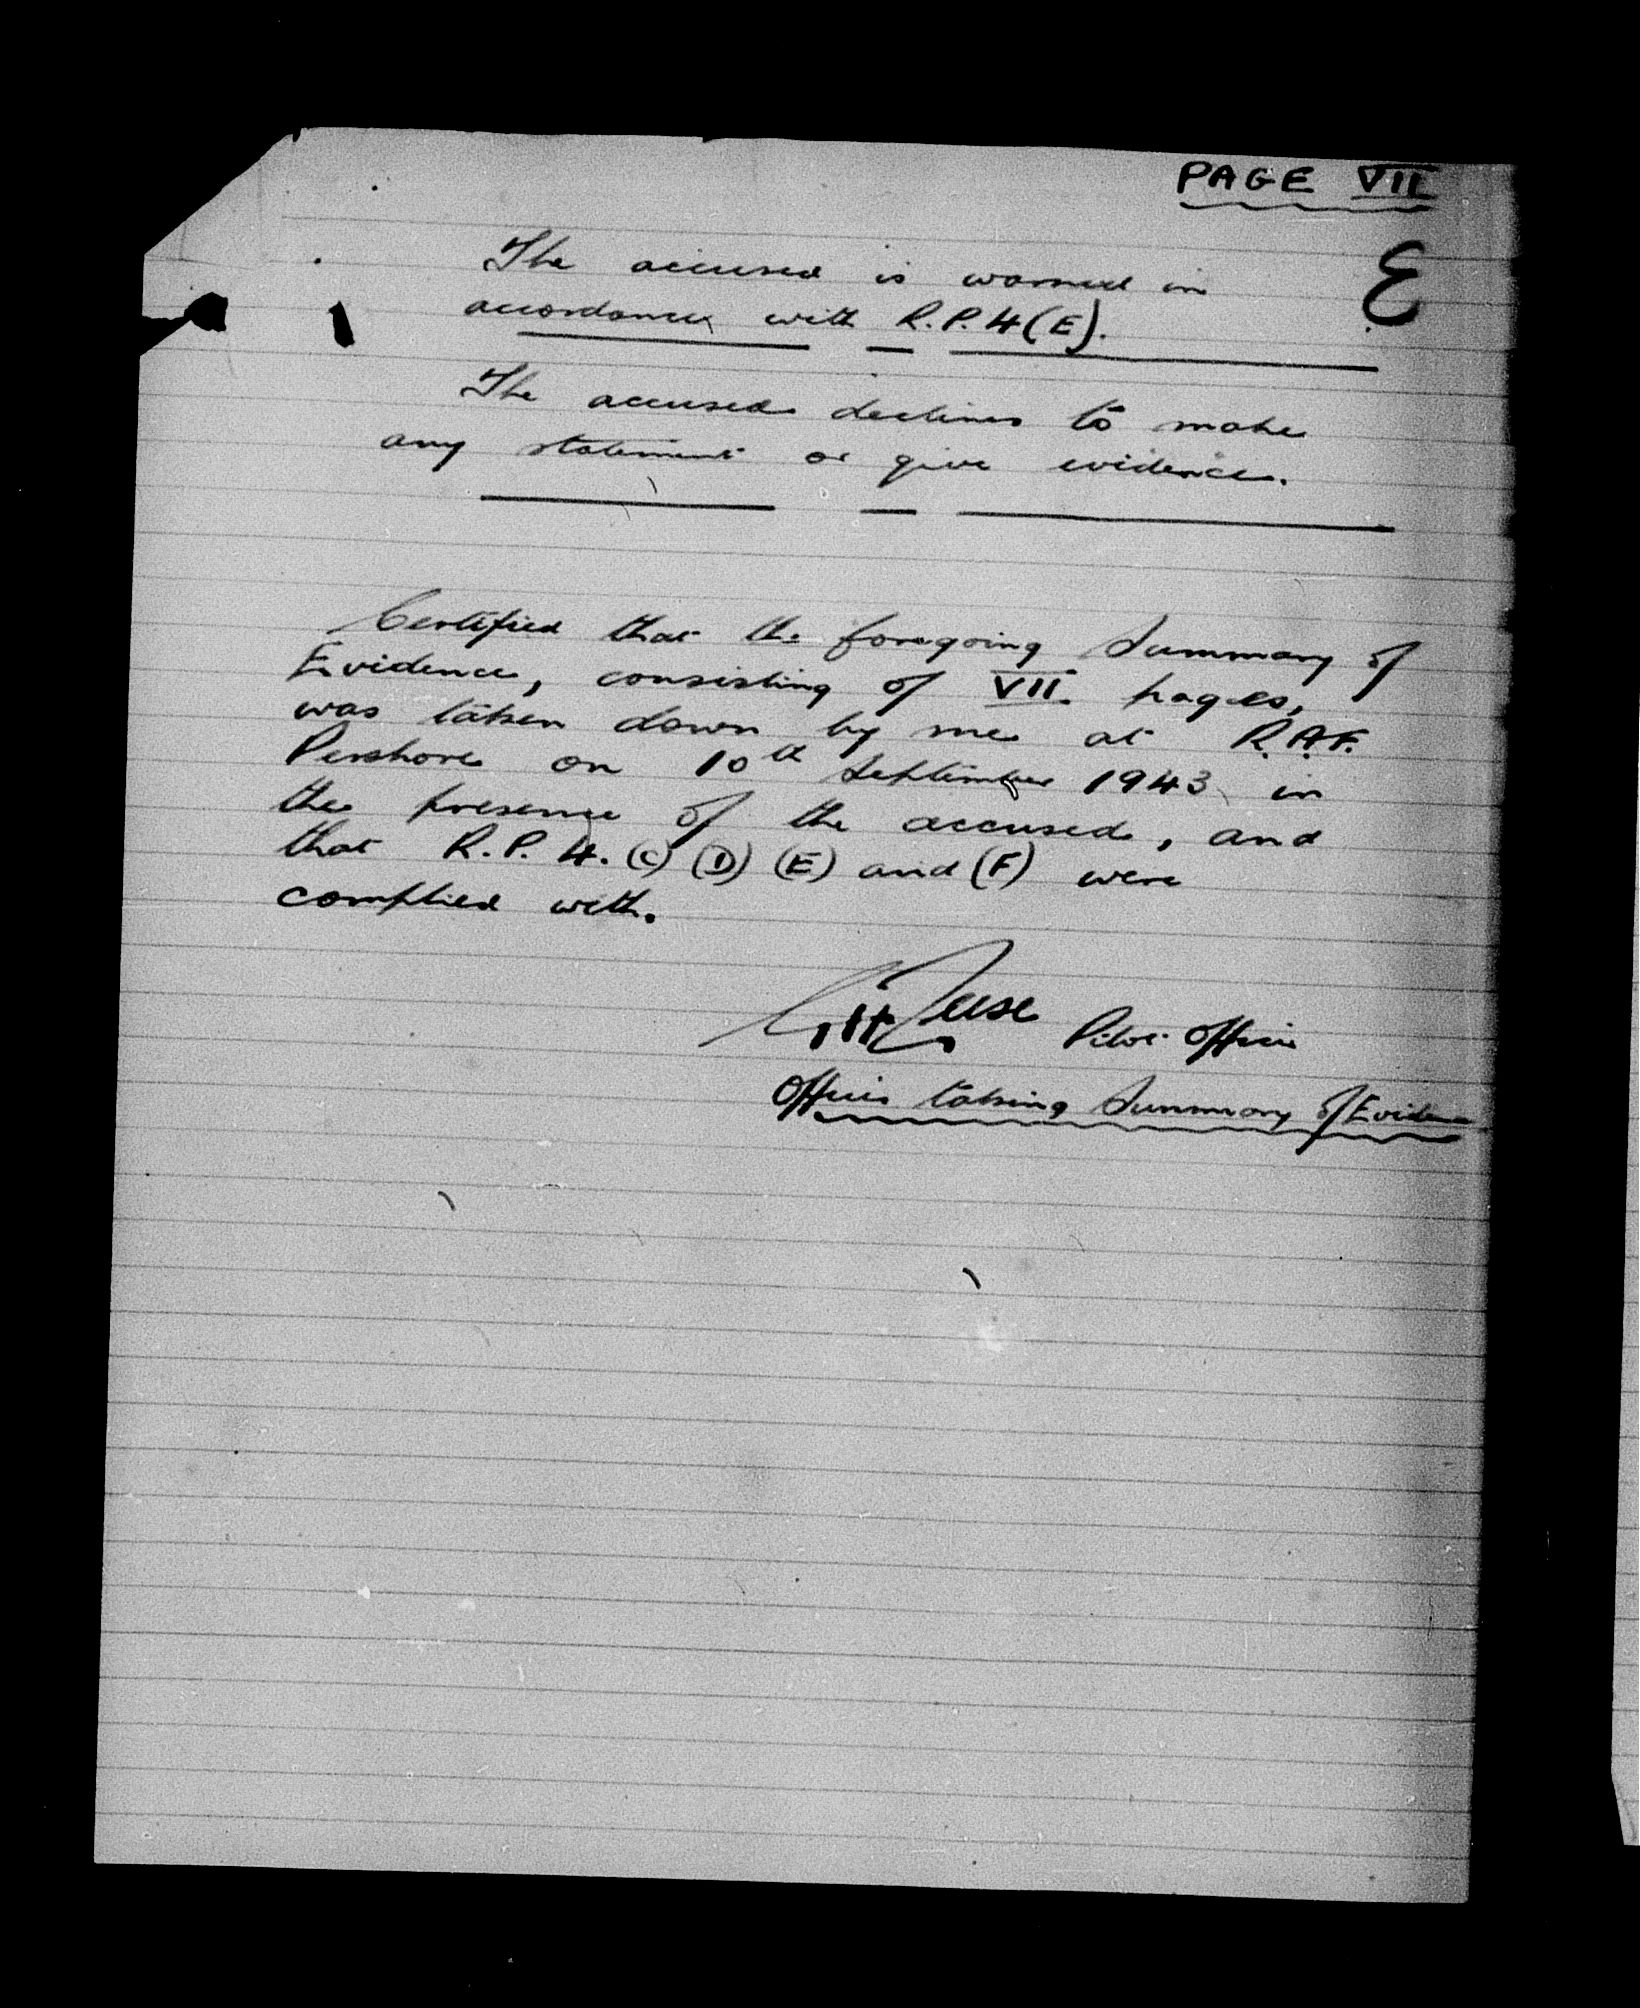 PAGE VII
E
The accused is warned in
accordance with R.P. 4(E).
The accused declines to make
any statement or give evidence.
Certified that the foregoing Summary of
Evidence, consisting of VII pages,
was taken down by me at R.A.F.
Pershore on 10th September 1943 in
the presence of the accused, and
that R.P. 4. (C) (D) (E) and (F) were
complied with.
Pilot Officer
Officer taking Summary of Evidence